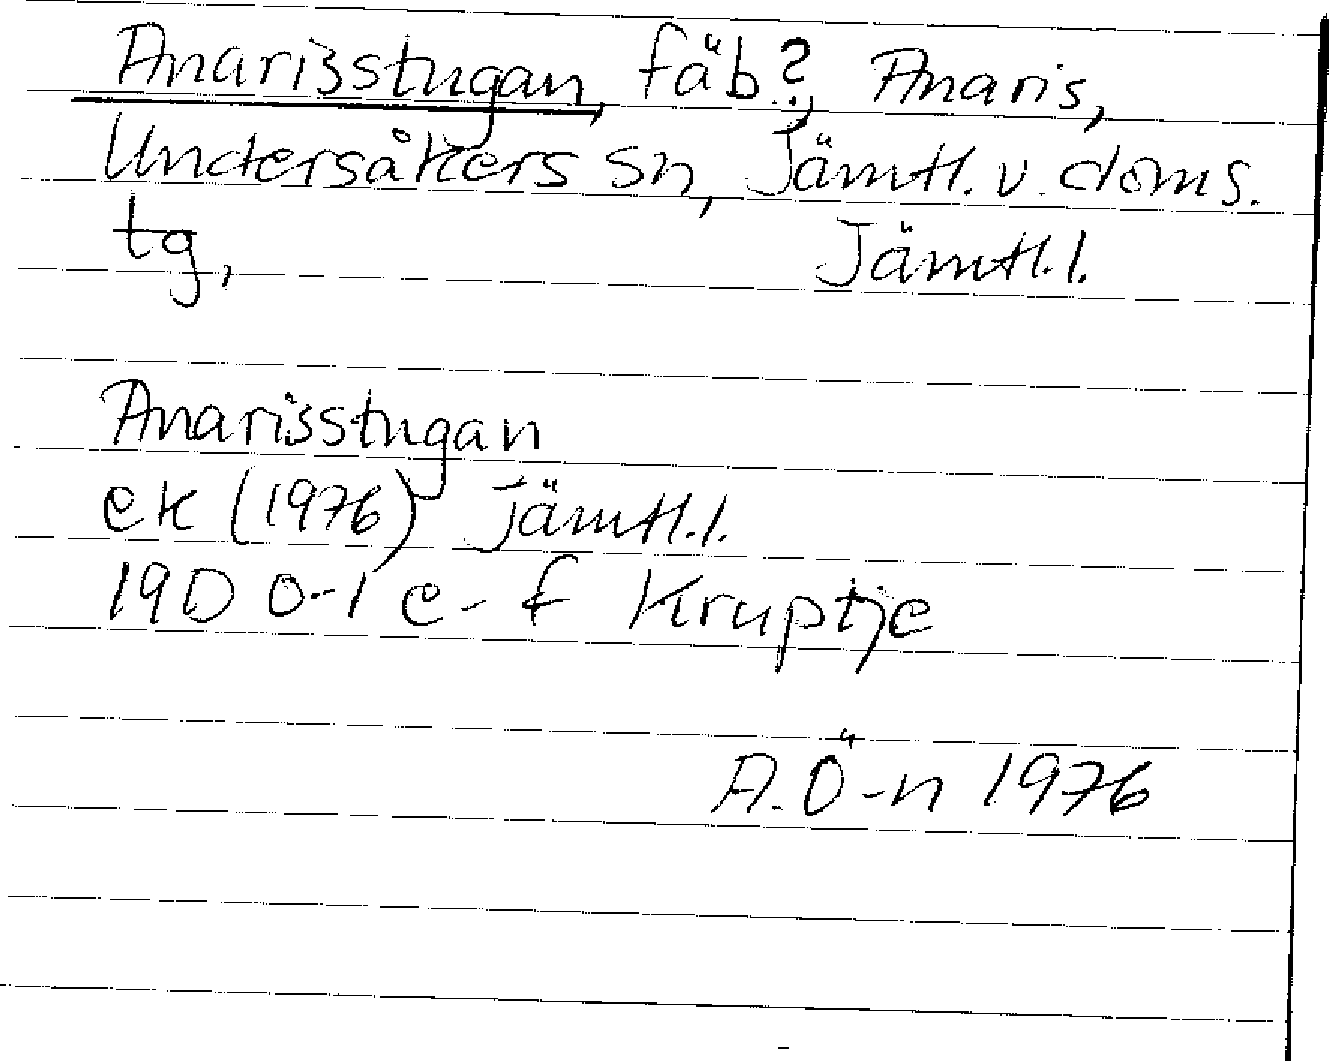 Anarisstugan, fäb?, Anaris,
Undersåkers sn, Jämtl. v. doms.
tg, Jämtl. l.
Anarisstugan
ek (1976) Jämtl. l.
19D 0-1 e-f Kruptje
A. Ö-n 1976